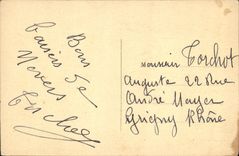 Bons
baisers de
Nevers
Monsieur Torchot
Auguste 22 Rue
André Mayer
Grigny Rhône